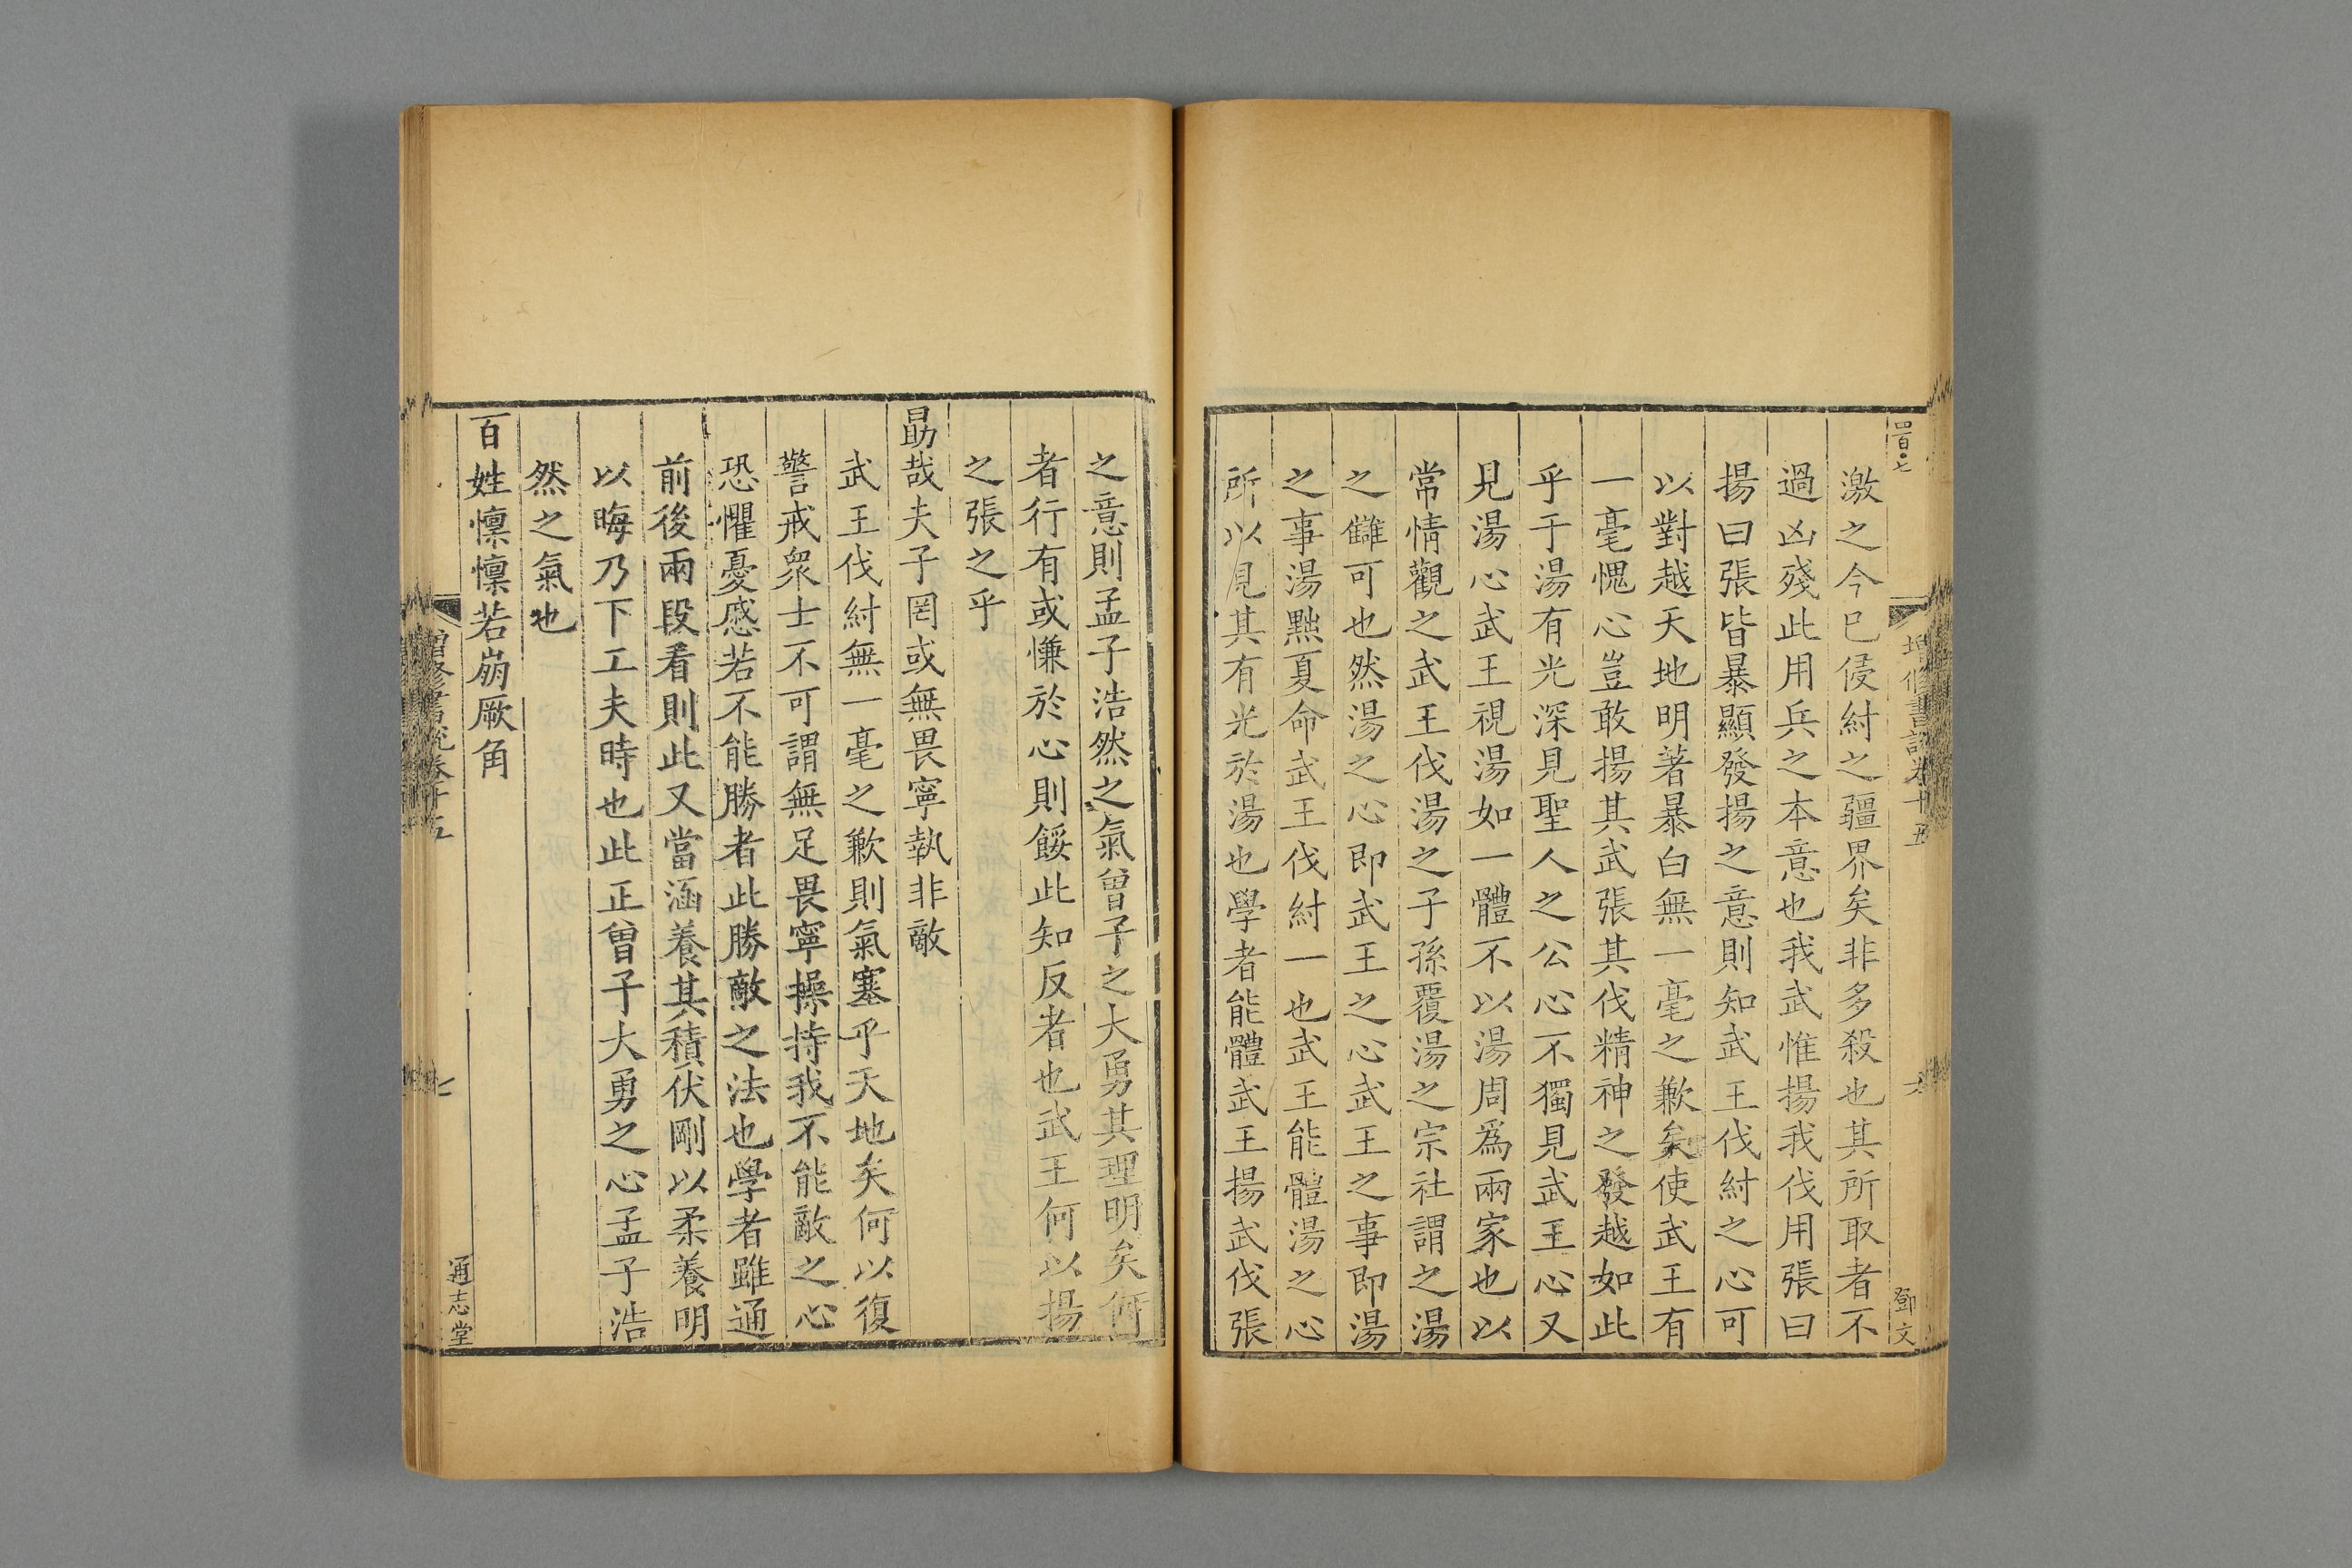 四百七
增修書說卷十五
六
鄧文
激之今已侵紂之疆界矣非多殺也其所取者不
過凶殘此用兵之本意也我武惟揚我伐用張曰
揚曰張皆暴顯發揚之意則知武王伐紂之心可
以對越天地明著暴白無一毫之歉矣使武王有
一毫愧心豈敢揚其武張其伐精神之發越如此
乎于湯有光深見聖人之公心不獨見武王心又
見湯心武王視湯如一體不以湯周爲兩家也以
常情觀之武王伐湯之子孫覆湯之宗社謂之湯
之讎可也然湯之心即武王之心武王之事即湯
之事湯黜夏命武王伐紂一也武王能體湯之心
所以見其有光於湯也學者能體武王揚武伐張
之意則孟子浩然之氣曾子之大勇其理明矣何
者行有或慊於心則餒此知反者也武王何以揚
之張之乎
勗哉夫子罔或無畏寧執非敵
武王伐紂無一毫之歉則氣塞乎天地矣何以復
警戒衆士不可謂無足畏寧操持我不能敵之心
恐懼憂慼若不能勝者此勝敵之法也學者雖通
前後兩段看則此又當涵養其積伏剛以柔養明
以晦乃下工夫時也此正曾子大勇之心孟子浩
然之氣也
百姓懍懍若崩厥角
增修書說卷十五
七
通志堂